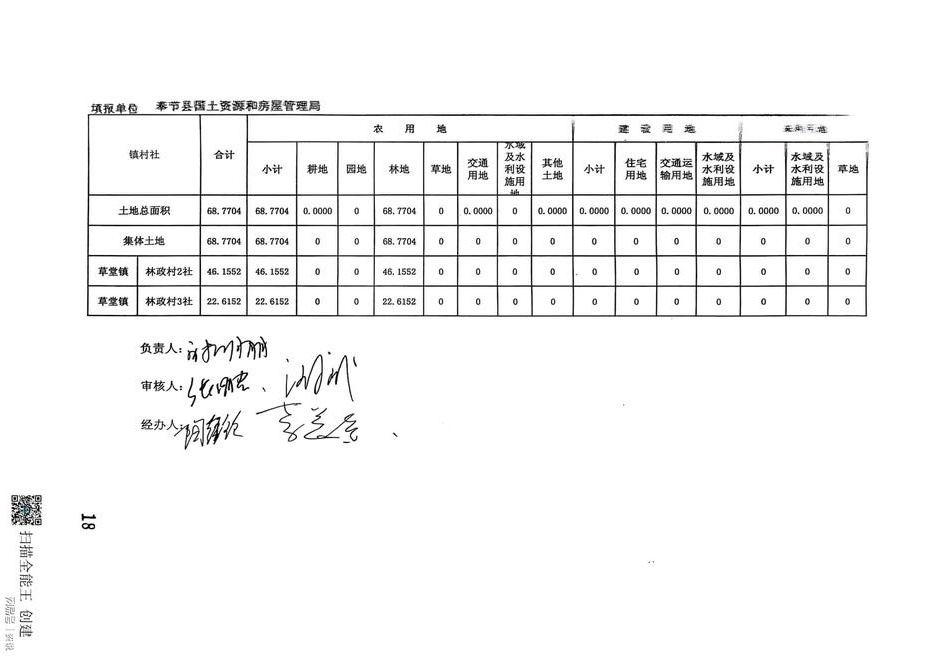 填报单位 奉节县国土资源和房屋管理局
镇村社 合计 农用地 建设用地
小计 耕地 园地 林地 草地 交通用地 水域及水利设施用地 其他土地 小计 住宅用地 交通运输用地 水域及水利设施用地 小计 水域及水利设施用地 草地
土地总面积 68.7704 68.7704 0.0000 0 68.7704 0 0.0000 0 0.0000 0.0000 0.0000 0.0000 0.0000 0.0000 0.0000 0
集体土地 68.7704 68.7704 0 0 68.7704 0 0 0 0 0 0 0 0 0 0 0
草堂镇 林政村2社 46.1552 46.1552 0 0 46.1552 0 0 0 0 0 0 0 0 0 0 0
草堂镇 林政村3社 22.6152 22.6152 0 0 22.6152 0 0 0 0 0 0 0 0 0 0 0
负责人:
审核人:
经办人:
18
扫描全能王 创建